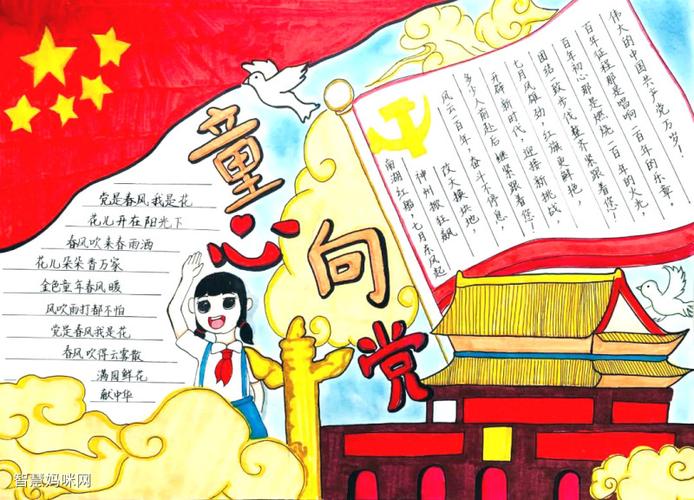 童心向党
党是春风我是花
花儿开在阳光下
春风吹来春雨洒
花儿朵朵香万家
金色童年春风暖
风吹雨打都不怕
党是春风我是花
春风吹得云雾散
满园鲜花
献中华
南湖红船，七月东风起
神州掀狂飙
风云一百年，奋斗不停息，
多少人前赴后继紧跟着您！
开辟新时代，迎接新挑战，
七月风雄劲，红旗更鲜艳，
团结一致步伐整齐紧跟着您！
百年初心那是燃烧一百年的火光，
百年征程那是唱响一百年的乐章
伟大的中国共产党万岁！
智慧妈咪网